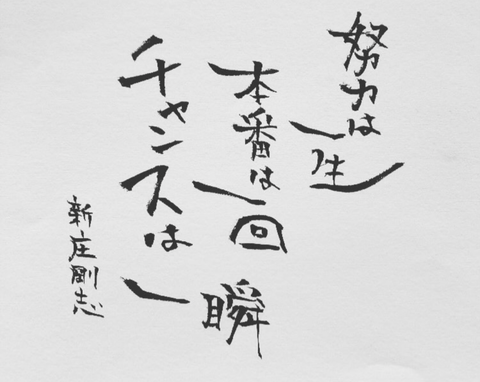 努力は
一生
本番は
一回
チャンスは
一瞬
新庄剛志